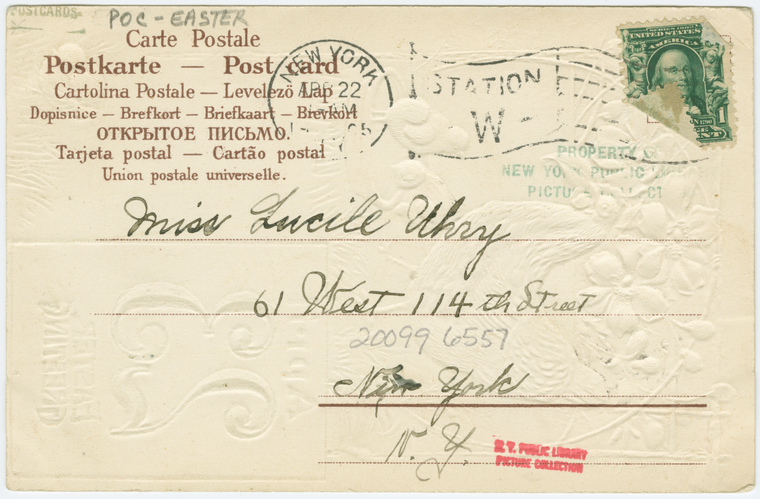 POSTCARDS
POC-EASTER
Carte Postale
Postkarte — Post card
Cartolina Postale — Levelező Lap
Dopisnice — Brefkort — Briefkaart — Brevkort
ОТКРЫТОЕ ПИСЬМО.
Tarjeta postal — Cartão postal
Union postale universelle.
NEW YORK
APR 22
AM
STATION
W
SERIES 1902
UNITED STATES
AMERICA
1790
1
CENT
PROPERTY
NEW YORK PUBLIC
Miss Lucile Uhry
61 West 114th Street
20099 6557
New York
N.Y.
N.Y. PUBLIC LIBRARY
PICTURE COLLECTION